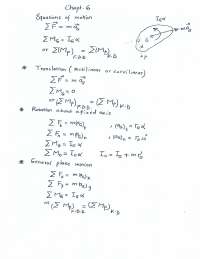 Chapt. 6
Equations of motion
ΣF = m a_G
Σ M_G = I_G α
or Σ(M_P)_F.B.D = Σ(M_P)_K.D
I_G α
m a_G
G
P
* Translation (rectilinear or curvilinear)
ΣF = m a_G
Σ M_G = 0
or (Σ M_P)_F.B.D = (Σ M_P)_K.D
* Rotation about a fixed axis
Σ F_t = m(a_G)_t
Σ F_n = m(a_G)_n
Σ M_G = I_G α
* General plane motion
Σ F_x = m(a_G)_x
Σ F_y = m(a_G)_y
Σ M_G = I_G α
or (Σ M_P)_F.B.D = (Σ M_P)_K.D